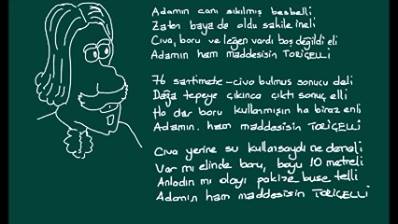 Adamın canı sıkılmış besbelli
Zaten baya da oldu sahile ineli
Civa, boru ve leğen vardı boş değildi eli
Adamın ham maddesisin TORİÇELLİ
76 santimete-civa bulmuş sonucu deli
Dağa tepeye çıkınca çıktı sonuç elli
Ha dar boru kullanmışsın ha biraz enli
Adamın ham maddesisin TORİÇELLİ
Civa yerine su kullansaydı ne demeli
Var mı elinde boru, boyu 10 metreli
Anladın mı olayı pakize buse telli
Adamın ham maddesisin TORİÇELLİ